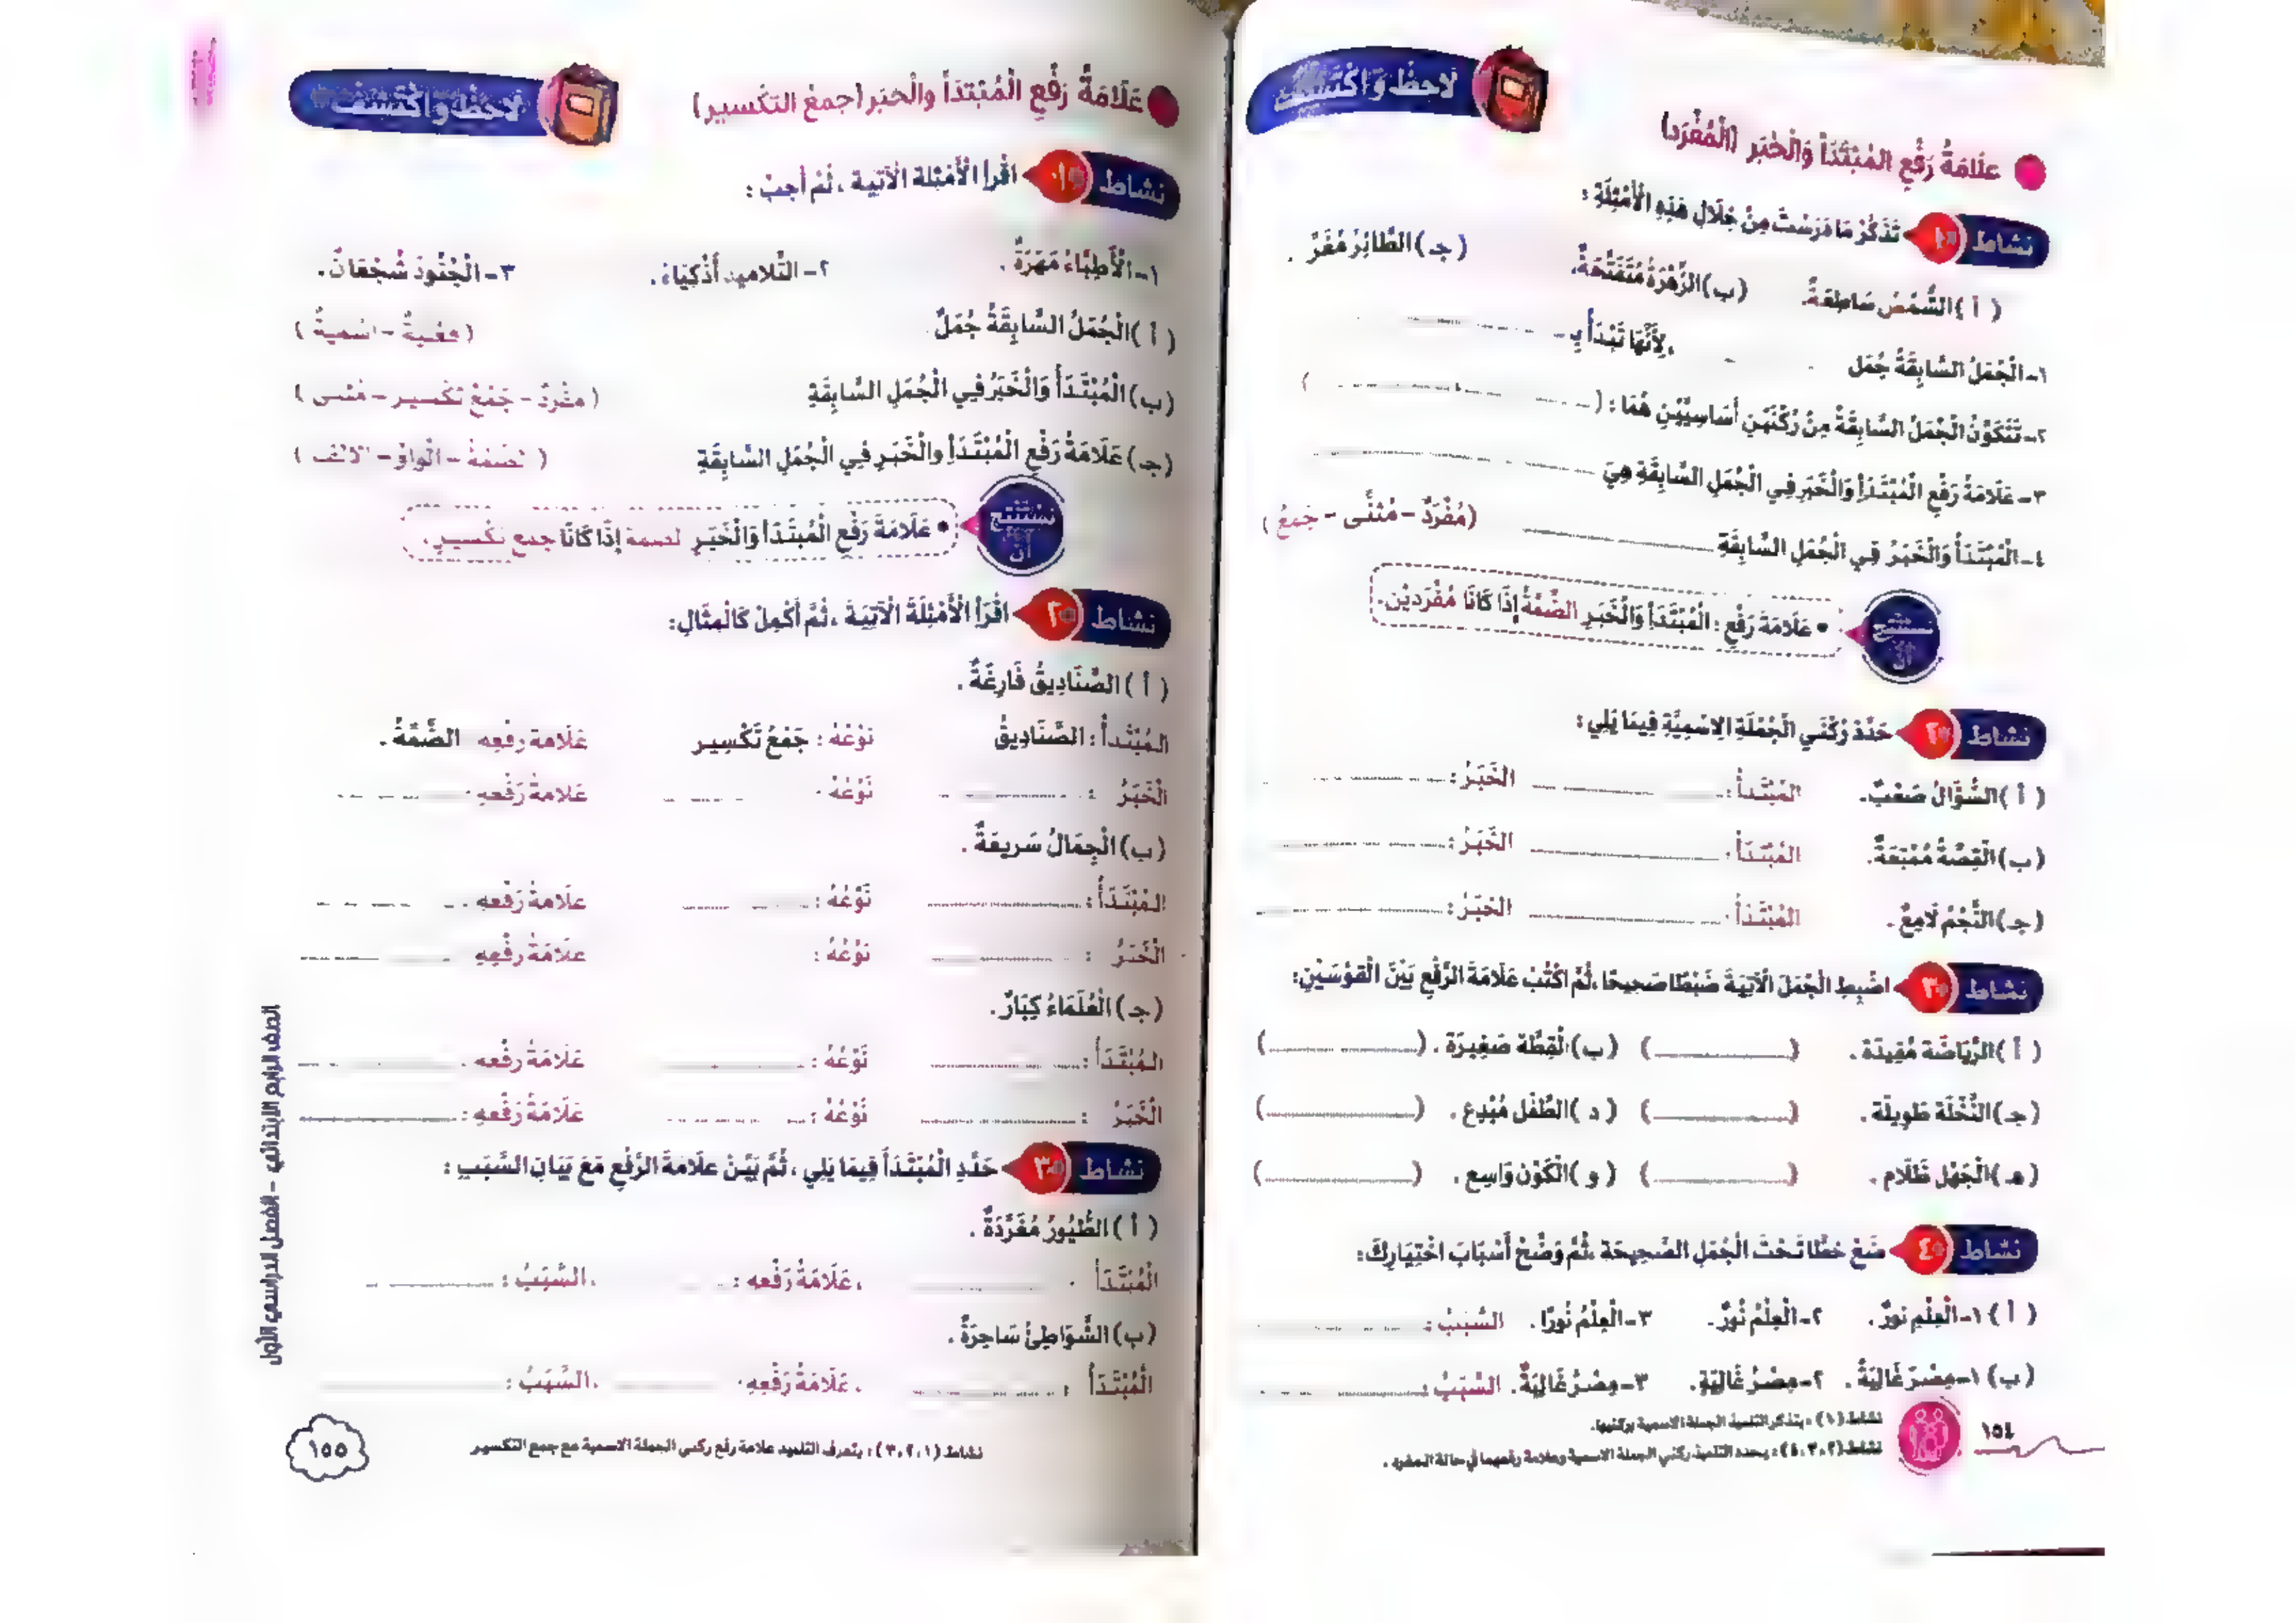 لَاحِظْ وَاكْتَشِفْ
عَلَامَةُ رَفْعِ الْمُبْتَدَأِ وَالْخَبَرِ (الْمُفْرَد)
نشاط ١ تَذَكَّرْ مَا دَرَسْتَ مِنْ خِلَالِ هَذِهِ الْأَمْثِلَةِ :
( أ ) الشَّمْسُ سَاطِعَةٌ. (ب) الزَّهْرَةُ مُتَفَتِّحَةٌ. (جـ) الطَّائِرُ مُغَرِّدٌ .
١- الْجُمَلُ السَّابِقَةُ جُمَل ، لِأَنَّهَا تَبْدَأُ بِـ
٢- تَتَكَوَّنُ الْجُمَلُ السَّابِقَةُ مِنْ رُكْنَيْنِ أَسَاسِيَّيْنِ هُمَا : ( ، )
٣- عَلَامَةُ رَفْعِ الْمُبْتَدَأِ وَالْخَبَرِ فِي الْجُمَلِ السَّابِقَةِ هِيَ
٤- الْمُبْتَدَأُ وَالْخَبَرُ فِي الْجُمَلِ السَّابِقَةِ (مُفْرَدٌ - مُثَنَّى - جَمعٌ)
نستنتج أن • عَلَامَةَ رَفْعِ : الْمُبْتَدَأِ وَالْخَبَرِ الضَّمَّةُ إِذَا كَانَا مُفْرَدَيْنِ.
نشاط ٢ حَدِّدْ رُكْنَيِ الْجُمْلَةِ الِاسْمِيَّةِ فِيمَا يَلِي :
( أ ) السُّؤَالُ صَعْبٌ. الْمُبْتَدَأُ : الْخَبَرُ :
(ب) الْقِصَّةُ مُمْتِعَةٌ. الْمُبْتَدَأُ : الْخَبَرُ :
(جـ) النَّجْمُ لَامِعٌ . الْمُبْتَدَأُ : الْخَبَرُ :
نشاط ٣ اضْبِطِ الْجُمَلَ الْآتِيَةَ ضَبْطًا صَحِيحًا ، ثُمَّ اكْتُبْ عَلَامَةَ الرَّفْعِ بَيْنَ الْقَوْسَيْنِ:
( أ ) الرِّيَاضَة مُفِيدَة . ( ) (ب) الْقِطَّة صَغِيرَة . ( )
(جـ) النَّخْلَة طَوِيلَة . ( ) ( د ) الطِّفْل مُبْدِع . ( )
(هـ) الْجَهْل ظَلَام . ( ) ( و ) الْكَوْن وَاسِع . ( )
نشاط ٤ ضَعْ خَطًّا تَحْتَ الْجُمَلِ الصَّحِيحَة ، ثُمَّ وَضِّحْ أَسْبَابَ اخْتِيَارِكَ:
( أ ) ١- الْعِلْمِ نورٌ . ٢- الْعِلْمُ نُورٌ. ٣- الْعِلْمُ نُورًا . السَّبَبُ :
(ب) ١- مِصْرَ غَالِيَةٌ . ٢- مِصْرُ غَالِيَةٍ. ٣- مِصْرُ غَالِيَةٌ . السَّبَبُ :
نشاط (١) : يتذكر التلميذ الجملة الاسمية بركنيها.
نشاط (٢، ٣، ٤) : يحدد التلميذ ركني الجملة الاسمية وعلامة رفعهما في حالة المفرد .
١٥٤
لَاحِظْ وَاكْتَشِفْ
عَلَامَةُ رَفْعِ الْمُبْتَدَأ والْخبَر (جمعُ التكْسير)
نشاط ١ اقْرَأ الْأَمْثِلَة الْآتِيةَ ، ثُمَّ أَجِبْ :
١- الْأَطِبَّاءُ مَهَرَةٌ . ٢- التَّلاميذ أَذْكِيَاءُ . ٣- الْجُنُودُ شُجْعَانٌ .
( أ ) الْجُمَلُ السَّابِقَةُ جُمَلٌ (فعْليةٌ - اسْميةٌ )
(ب) الْمُبْتَدَأُ وَالْخَبَرُ فِي الْجُمَلِ السَّابِقَةِ (مفْردٌ - جَمْعُ تكْسير - مُثنى )
(جـ) عَلَامَةُ رَفْعِ الْمُبْتَدَأِ والْخَبَرِ فِي الْجُمَلِ السَّابِقَةِ ( الضمةُ - الْواوُ - الْألف )
نسْتَنْتِج أن • عَلَامَةَ رَفْعِ الْمُبْتَدَأ وَالْخَبَرِ الضمة إِذَا كَانَا جمع تكْسيرٍ .
نشاط ٢ اقْرَأِ الْأَمْثِلَةَ الْآتِيَةَ ، ثُمَّ أَكْمِلْ كَالْمِثَالِ:
( أ ) الصَّنَادِيقُ فَارِغَةٌ .
الْمُبْتَدأُ : الصَّنَادِيقُ نَوْعُهُ : جَمْعُ تَكْسِير عَلَامة رفْعِه الضَّمَّةُ .
الْخَبَرُ : نَوْعُهُ : عَلامَةُ رَفْعهِ :
(ب) الْجِمَالُ سَرِيعَةٌ .
الْمُبْتَدَأُ : نَوْعُهُ : عَلَامةُ رَفْعهِ :
الْخَبَرُ : نَوْعُهُ : عَلَامَةُ رفْعِهِ
(جـ) الْعُلَمَاءُ كِبَارٌ.
الْمُبْتَدَأُ : نَوْعُهُ : عَلَامَةُ رفْعه .
الْخَبَرُ : نَوْعُهُ : عَلَامَةُ رَفْعهِ :
نشاط ٣ حَدِّدِ الْمُبْتَدَأَ فِيمَا يَلِي ، ثُمَّ بَيِّنْ علَامَةَ الرَّفْعِ مَعَ بَيَانِ السَّبَبِ :
( أ ) الطُّيُورُ مُغَرِّدَةٌ .
الْمُبْتَدَأُ : ، عَلَامَةُ رَفْعه : ، السَّبَبُ :
(ب) الشَّوَاطِئُ سَاحِرَةٌ .
الْمُبْتَدَأُ : ، عَلَامَةُ رَفْعِهِ : ، السَّبَبُ :
نشاط (١، ٢، ٣) : يتعرف التلميذ علامة رفع ركني الجملة الاسمية مع جمع التكسير
١٥٥
الصف الرابع الابتدائي - الفصل الدراسي الأول